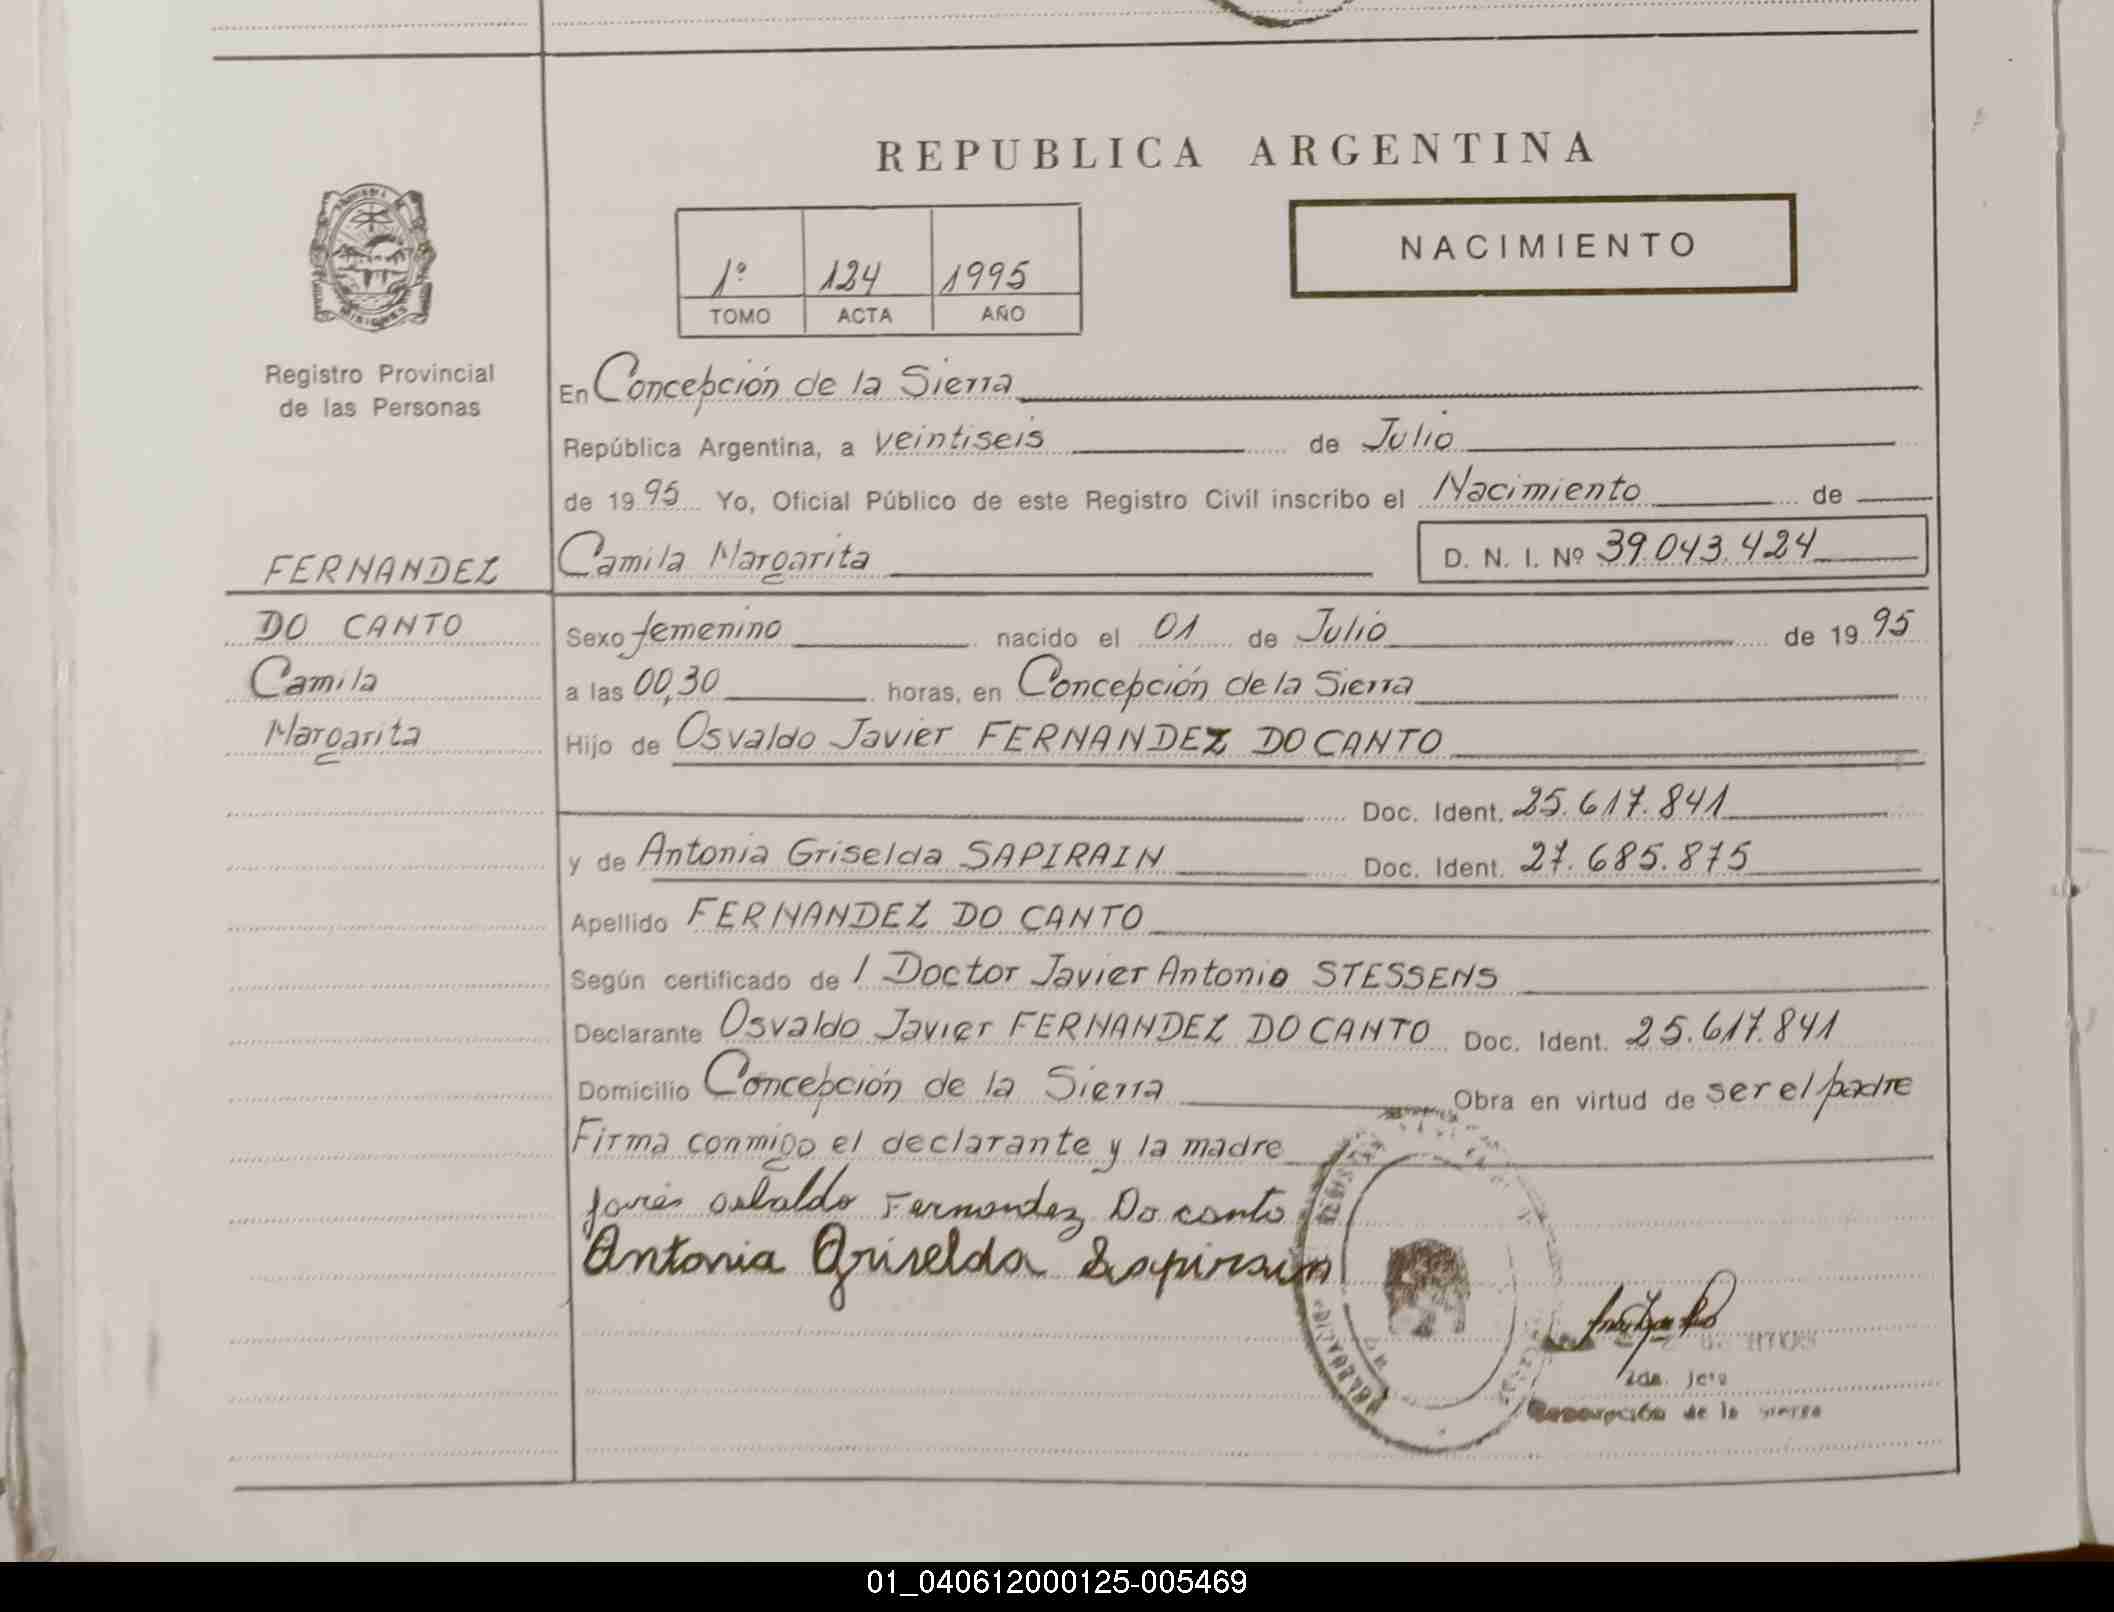 REPUBLICA ARGENTINA
NACIMIENTO
1º 124 1995
TOMO ACTA AÑO
Registro Provincial
de las Personas
En Concepción de la Sierra
República Argentina, a veintiseis de Julio
de 19 95 Yo, Oficial Público de este Registro Civil inscribo el Nacimiento de
FERNANDEZ
Camila Margarita D. N. I. Nº 39.043.424
DO CANTO
Camila
Margarita
Sexo femenino nacido el 01 de Julio de 19 95
a las 00,30 horas, en Concepción de la Sierra
Hijo de Osvaldo Javier FERNANDEZ DO CANTO
Doc. Ident. 25.617.841
y de Antonia Griselda SAPIRAIN Doc. Ident. 27.685.875
Apellido FERNANDEZ DO CANTO
Según certificado de l Doctor Javier Antonio STESSENS
Declarante Osvaldo Javier FERNANDEZ DO CANTO Doc. Ident. 25.617.841
Domicilio Concepción de la Sierra Obra en virtud de ser el padre
Firma conmigo el declarante y la madre
Osbaldo Fernandez Do canto
Antonia Griselda Sapirain
Concepción de la Sierra
01_040612000125-005469